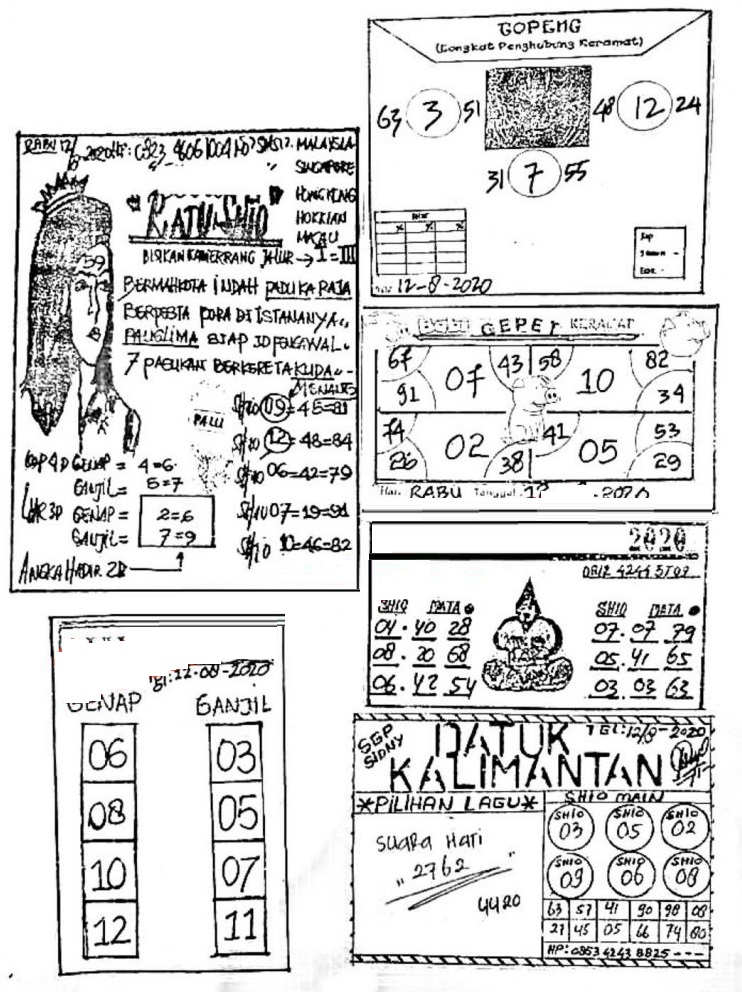 GOPENG
(Congkat Penghubung Keramat)
63 3 51
48 12 24
31 7 55
12-8-2020
RABU 12/
MALAYSIA
SINGAPORE
HONGKONG
HOKKIAN
MACAU
RATU SHIO
I = III
59
BERMAHKOTA INDAH PADUKA RAJA
BERPESTA PORA DI ISTANANYA..
PANGLIMA SIAP
PENGAWAL.
7 PASUKAN BERKERETA KUDA..
PALU
SHIO 09 = 45=81
SHIO 12 = 48=84
SHIO 06=42=79
SHIO 07=19=91
SHIO 10=46=82
GENAP = 4=6
GANJIL = 5=7
GENAP = 2=6
GANJIL = 7=9
ANGKA HADIR 2D
BABI GEPET KERAMAT
67 07 43 58 10 82
91 34
74 02 41 05 53
26 38 29
Hari RABU Tanggal 12 . .2020
2020
SHIO MATA
04 . 40 28
08 . 20 68
06 . 42 54
SHIO MATA
07 . 07 79
05 . 41 65
03 . 03 63
12-08-2020
GENAP GANJIL
06 03
08 05
10 07
12 11
SGP
SIDNY
DATUK
TGL:12/8-2020
KALIMANTAN
*PILIHAN LAGU*
SUARA HATI
"2762"
4420
SHIO MAIN
SHIO 03 SHIO 05 SHIO 02
SHIO 09 SHIO 06 SHIO 08
63 57 41 90 98 08
27 45 05 66 74 80
HP: 0853 4243 8825 - - -